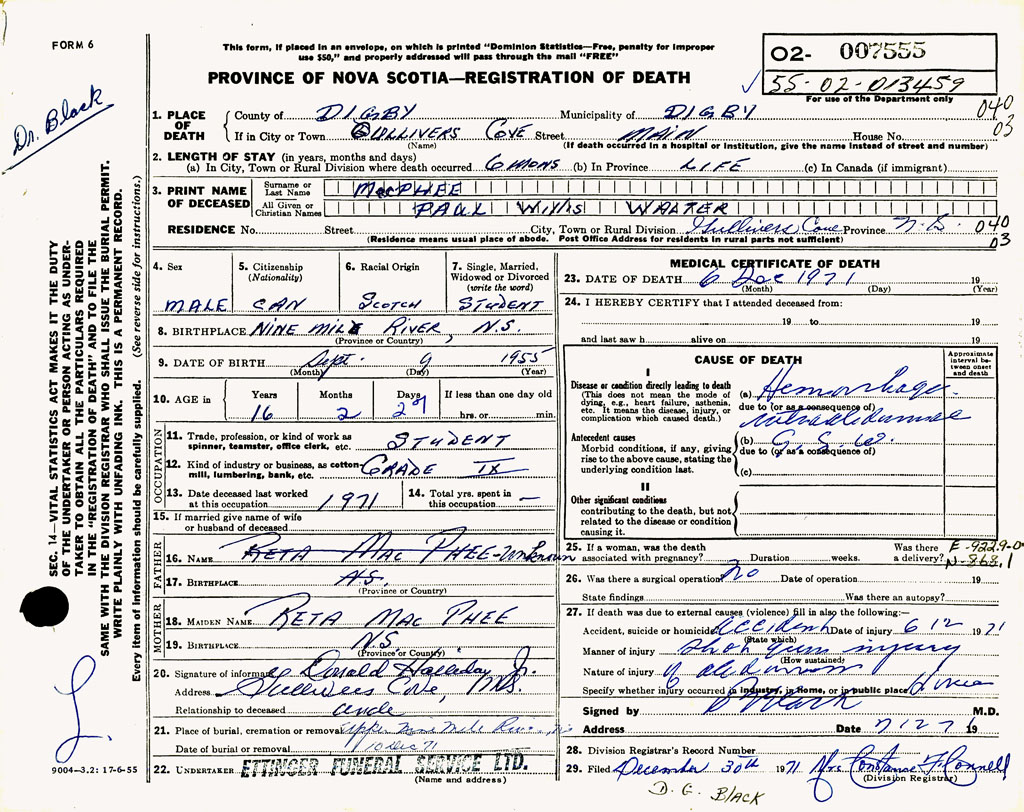 FORM 6
This form, if placed in an envelope, on which is printed "Dominion Statistics—Free, penalty for improper
use $50," and properly addressed will pass through the mail "FREE"
PROVINCE OF NOVA SCOTIA—REGISTRATION OF DEATH
02- 007555
55-02-013459
For use of the Department only
Dr. Black
SEC. 14—VITAL STATISTICS ACT MAKES IT THE DUTY
OF THE UNDERTAKER OR PERSON ACTING AS UNDER-
TAKER TO OBTAIN ALL THE PARTICULARS REQUIRED
IN THE "REGISTRATION OF DEATH" AND TO FILE THE
SAME WITH THE DIVISION REGISTRAR WHO SHALL ISSUE THE BURIAL PERMIT.
WRITE PLAINLY WITH UNFADING INK. THIS IS A PERMANENT RECORD.
Every item of information should be carefully supplied. (See reverse side for instructions.)
9004-3.2: 17-6-55
1. PLACE OF DEATH
County of DIGBY Municipality of DIGBY 040
If in City or Town GULLIVERS COVE Street MAIN House No. 03
(Name) (If death occurred in a hospital or institution, give the name instead of street and number)
2. LENGTH OF STAY (in years, months and days)
(a) In City, Town or Rural Division where death occurred 6 MONS (b) In Province LIFE (c) In Canada (if immigrant)
3. PRINT NAME OF DECEASED
Surname or Last Name MacPHEE
All Given or Christian Names PAUL Willis WALTER
RESIDENCE No. Street City, Town or Rural Division Gullivers Cove Province N.S. 040
(Residence means usual place of abode. Post Office Address for residents in rural parts not sufficient) 03
4. Sex MALE
5. Citizenship (Nationality) CAN
6. Racial Origin SCOTCH
7. Single, Married, Widowed or Divorced (write the word) STUDENT
8. BIRTHPLACE NINE MILE RIVER, N.S.
(Province or Country)
9. DATE OF BIRTH Sept. 9 1955
(Month) (Day) (Year)
10. AGE in Years 16 Months 2 Days 27 If less than one day hrs. or min.
OCCUPATION
11. Trade, profession, or kind of work as spinner, teamster, office clerk, etc. STUDENT
12. Kind of industry or business, as cotton-mill, lumbering, bank, etc. GRADE IX
13. Date deceased last worked at this occupation 1971
14. Total yrs. spent in this occupation —
15. If married give name of wife or husband of deceased
FATHER
16. NAME RETA MAC PHEE-Unknown
17. BIRTHPLACE N.S.
(Province or Country)
MOTHER
18. MAIDEN NAME RETA MAC PHEE
19. BIRTHPLACE N.S.
(Province or Country)
20. Signature of informant Donald Halliday Jr.
Address Gullivers Cove, N.S.
Relationship to deceased uncle
21. Place of burial, cremation or removal Upper Nine Mile River, NS
Date of burial or removal 10 Dec 71
22. UNDERTAKER ETTINGER FUNERAL SERVICE LTD.
(Name and address)
MEDICAL CERTIFICATE OF DEATH
23. DATE OF DEATH 6 Dec 1971 19
(Month) (Day) (Year)
24. I HEREBY CERTIFY that I attended deceased from:
19 to 19
and last saw h alive on 19
CAUSE OF DEATH
Approximate interval between onset and death
I
Disease or condition directly leading to death
(This does not mean the mode of dying, e.g., heart failure, asthenia, etc. It means the disease, injury, or complication which caused death.)
(a) Hemorrhage
due to (or as a consequence of)
Antecedent causes
Morbid conditions, if any, giving rise to the above cause, stating the underlying condition last.
(b) G.S.W.
due to (or as a consequence of)
(c)
II
Other significant conditions
contributing to the death, but not related to the disease or condition causing it.
25. If a woman, was the death associated with pregnancy? Duration weeks. Was there a delivery?
E-922.9-0
N-868.1
26. Was there a surgical operation? No Date of operation 19
State findings Was there an autopsy?
27. If death was due to external causes (violence) fill in also the following:—
Accident, suicide or homicide Accident Date of injury 6 12 1971
(State which)
Manner of injury shot gun injury
(How sustained)
Nature of injury
Specify whether injury occurred in industry, in home, or in public place Home
Signed by Black M.D.
Address Date 7 12 71 19
28. Division Registrar's Record Number
29. Filed December 30th 1971 Mrs Constance F. Connell
(Division Registrar)
D. G. BLACK